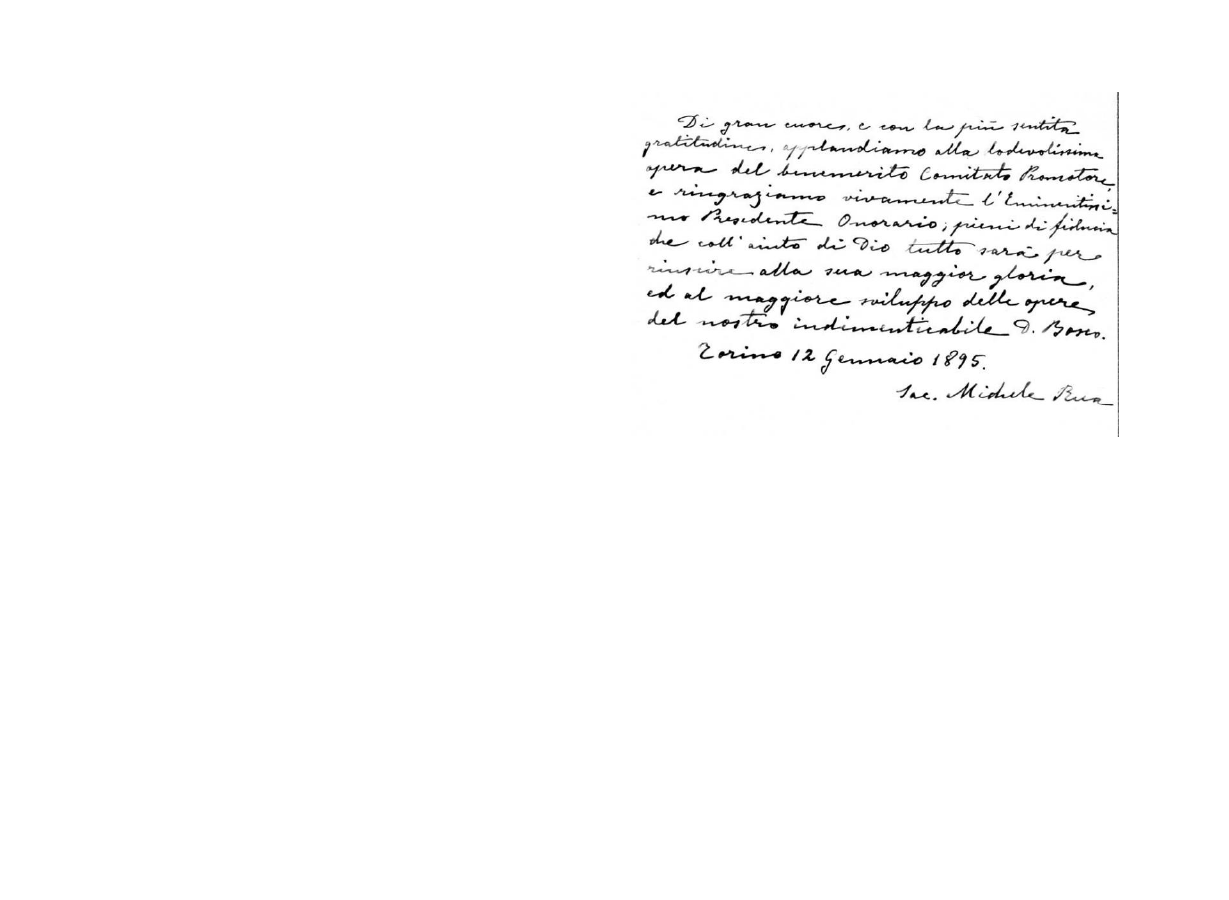 Di gran cuore, e con la più sentita
gratitudine, applaudiamo alla lodevolissima
opera del benemerito Comitato Promotore,
e ringraziamo vivamente l'Eminentissi=
mo Presidente Onorario; pieni di fiducia
che coll'aiuto di Dio tutto sarà per
riuscire alla sua maggior gloria,
ed al maggiore sviluppo delle opere
del nostro indimenticabile D. Bosco.
Torino 12 Gennaio 1895.
Sac. Michele Rua